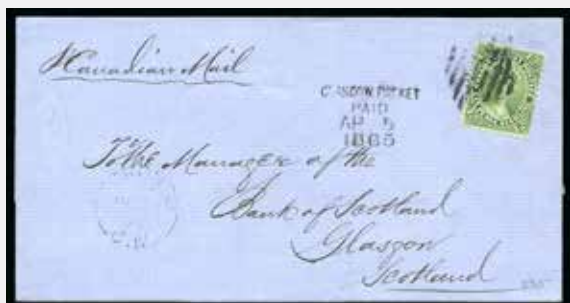 Canadian Mail
GLASGOW PACKET
PAID
AP 5
1865
To the Manager of the
Bank of Scotland
Glasgow
Scotland